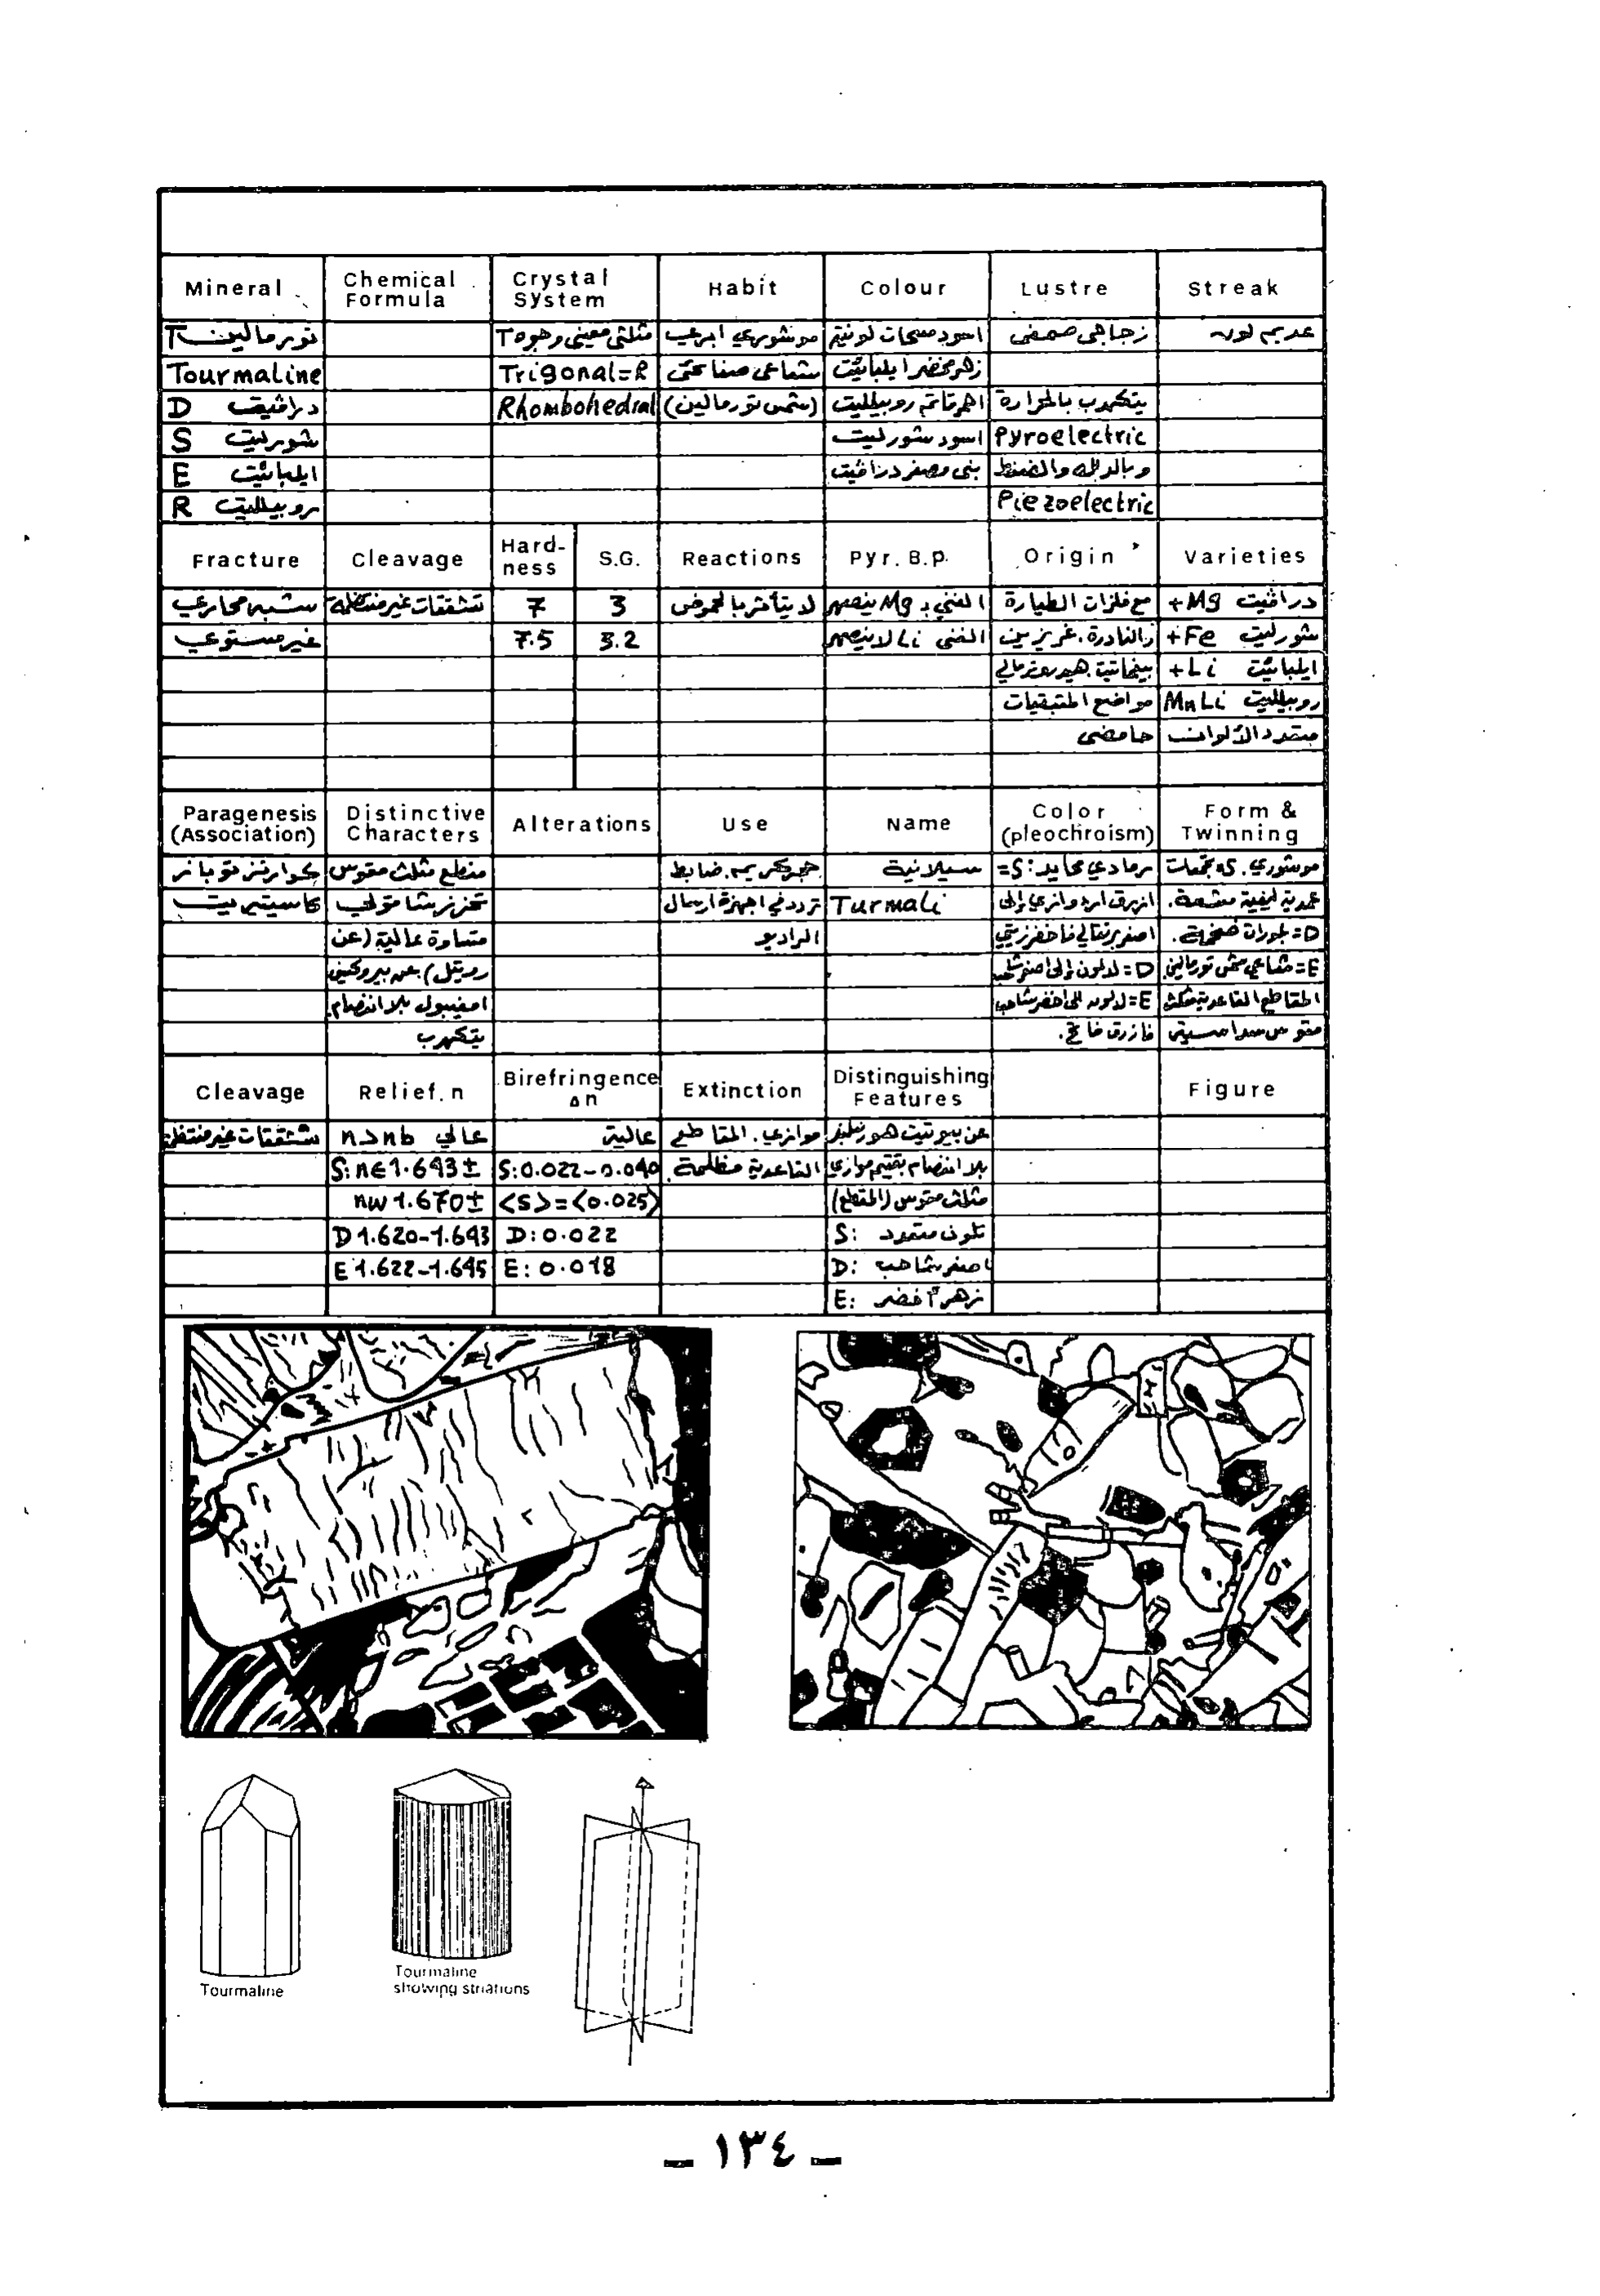 Mineral Chemical Formula Crystal System Habit Colour Lustre Streak
تورمالين T مثلثي معيني وجوه T موشوري ابري زجاجي صمغي عديم لونه
Tourmaline Trigonal=R شعاعي صفائحي
درافيت D Rhombohedral (شمس تورمالين) احمر قاتم روبيلليت يتكهرب بالحرارة
شورليت S اسود شورليت Pyroelectric
ايلبائيت E بني وصفر درافيت وبالدلك والضغط
روبيلليت R Piezoelectric
Fracture Cleavage Hard-ness S.G. Reactions Pyr. B.p. Origin Varieties
شبه محاري تشققات غير منتظمة 7 3 لا يتأثر بالحموض الغني بـ Mg ينصهر مع فلزات الطيارة درافيت Mg+
غير مستوي 7.5 3.2 الغني Li لا ينصهر والنادرة. شورليت Fe+
ايلبائيت Li+
مواضع المتبقيات روبيلليت MnLi
حامضي متعدد الألوان
Paragenesis (Association) Distinctive Characters Alterations Use Name Color (pleochroism) Form & Twinning
كوارتز توباز مقطع مثلث مقوس حجر كريم. ضابط سيلانية رمادي محايد: S=
كاسيتيريت تردد في اجهزة ارسال Turmali
قساوة عالية (عن الراديو D= بلورات ضخمة.
روتيل). عن بيروكسين D= لالون إلى اصفر شاحب E= شعاعي شمس تورمالين
امفيبول بلا انفصام E= لالون الى اخضر شاحب
يتكهرب فازرق فاتح.
Cleavage Relief. n Birefringence Δn Extinction Distinguishing Features Figure
تشققات غير منتظمة عالي n>nb عالية موازي. المقاطع عن بيوتيت هورنبلند
S: nE 1.643± S: 0.022-0.040 القاعدية مظلمة
nW 1.670± <S>=<0.025> مثلث مقوس (المقطع)
D 1.620-1.643 D: 0.022 S: تلون متعدد
E 1.622-1.645 E: 0.018 D: اصفر شاحب
E: زهر أخضر
Tourmaline
Tourmaline
showing striations
- ١٣٤ -